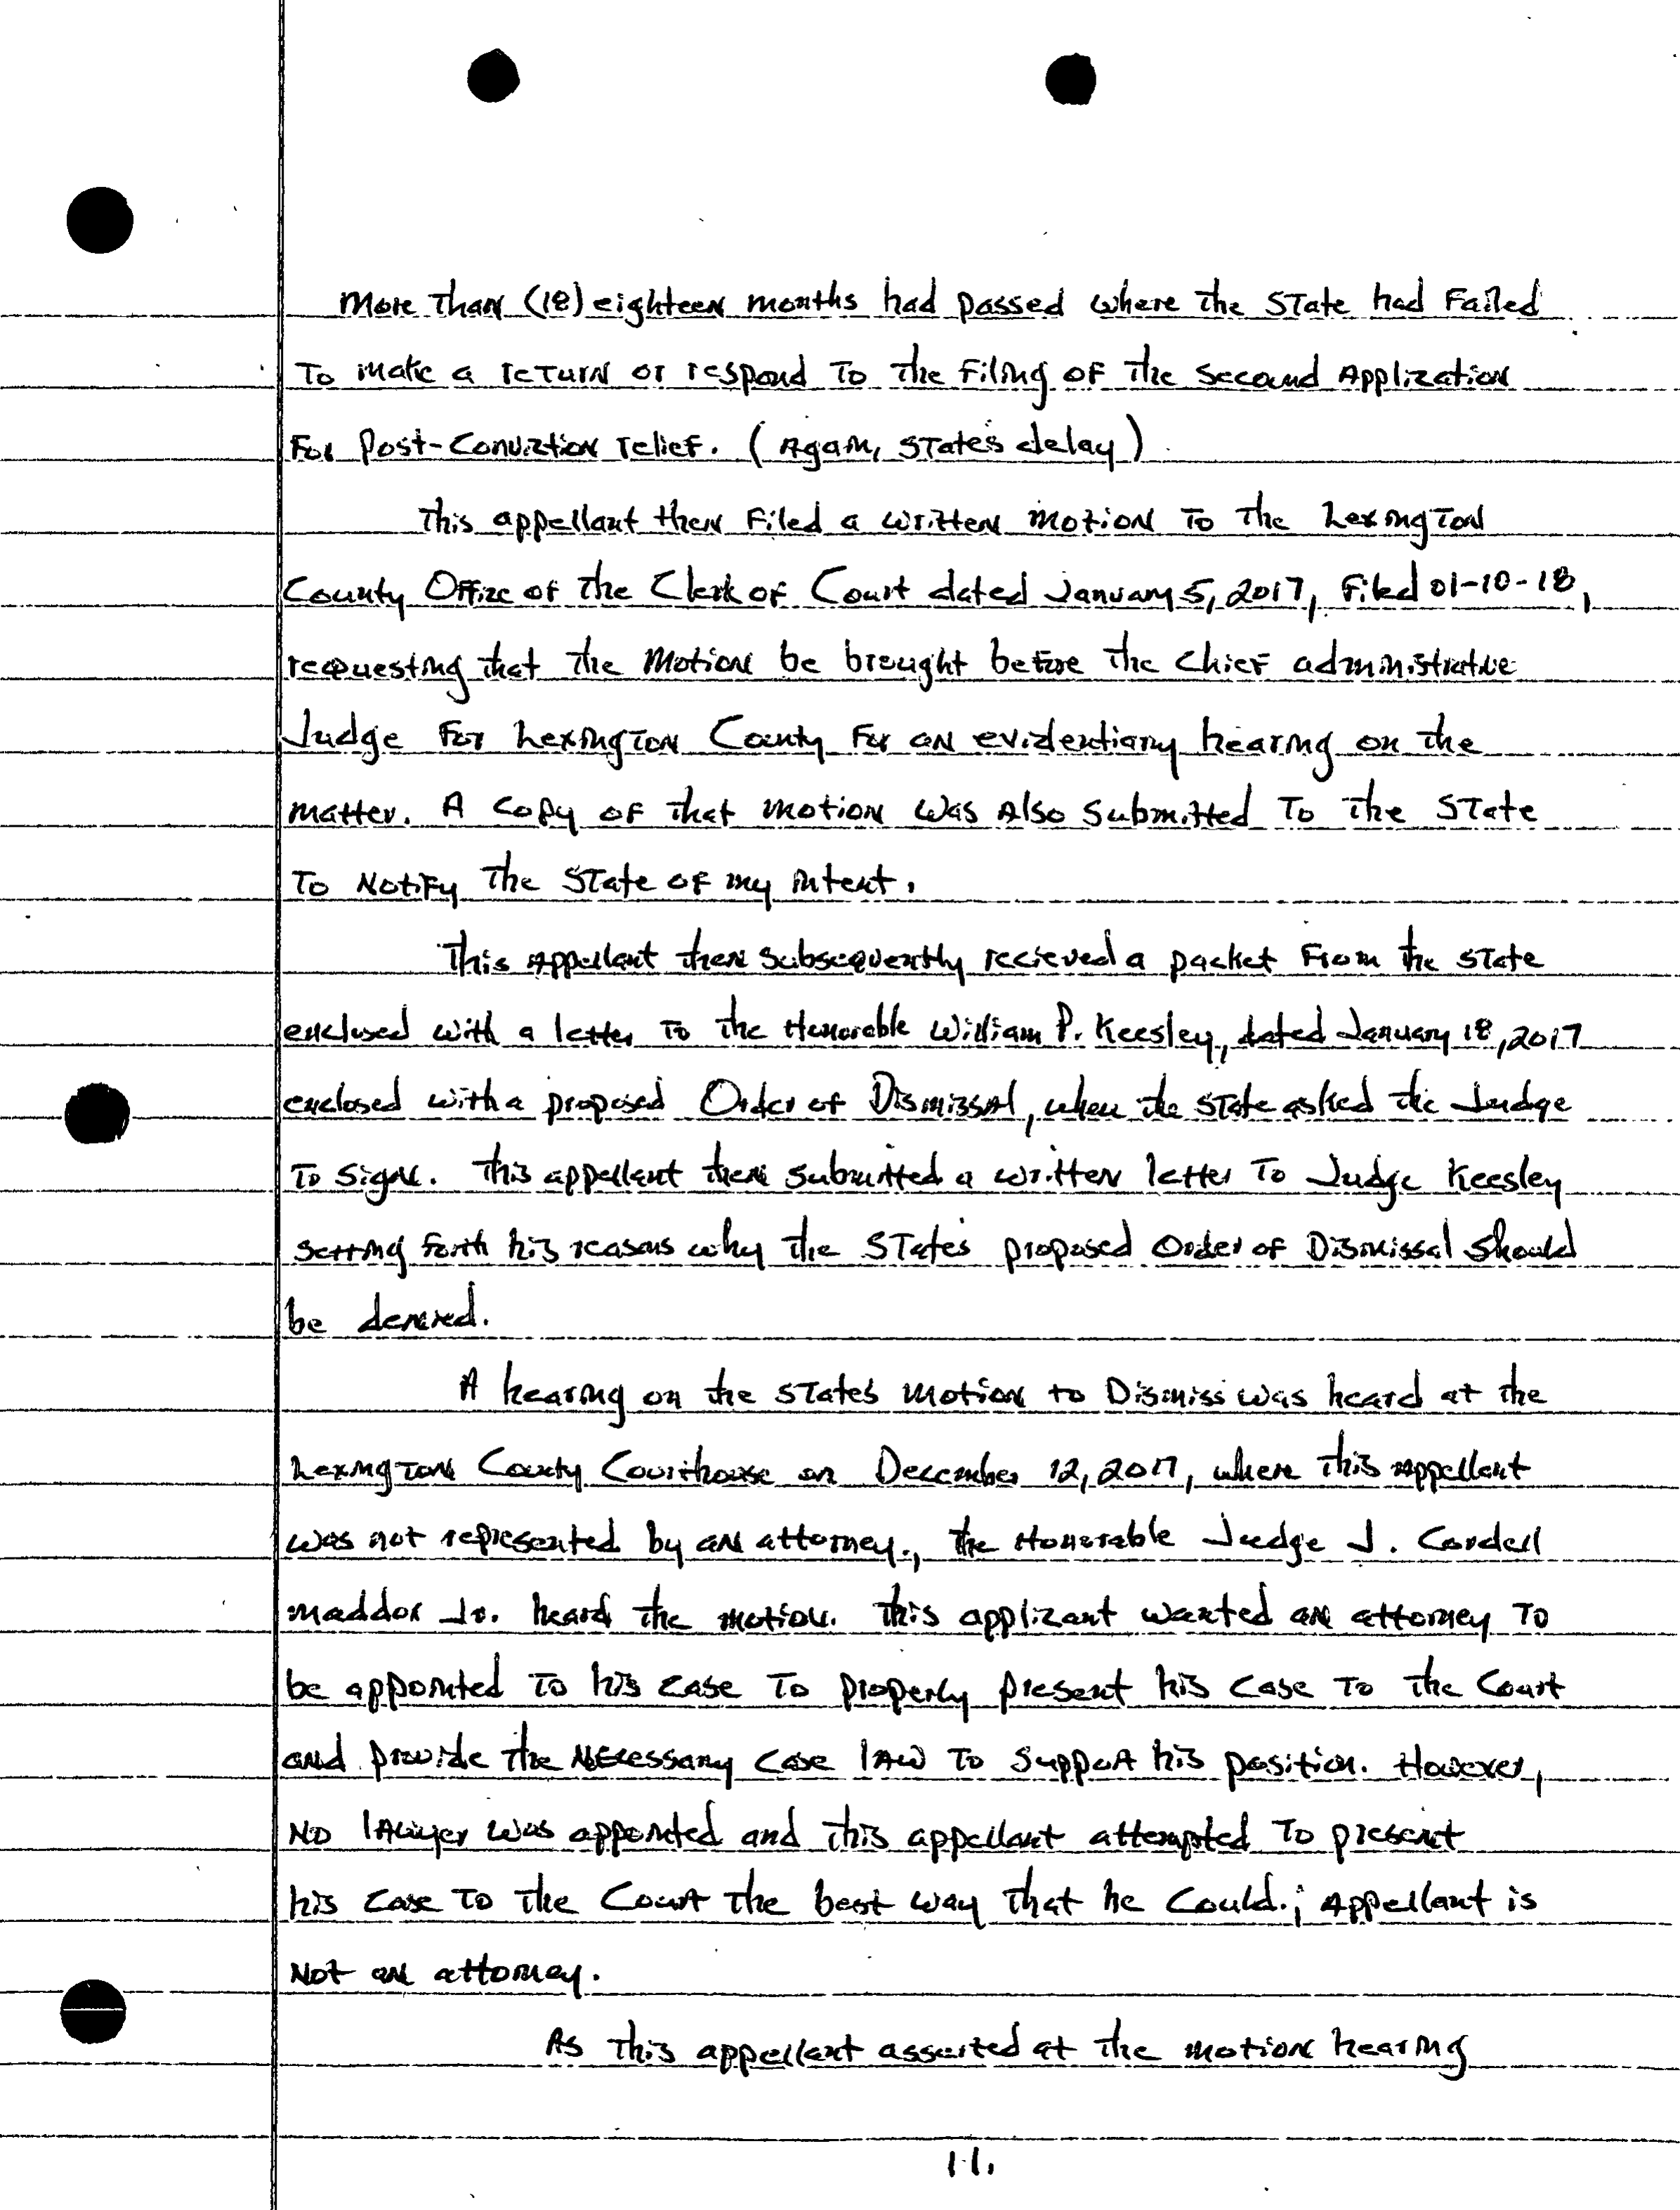 More Than (18) eighteen months had passed where the State had Failed
To make a return or respond To the Filing of the Second Application
For Post-Conviction relief. (Again, State's delay)
This appellant then Filed a written motion To The Lexington
County Office of the Clerk of Court dated January 5, 2017, Filed 01-10-18,
requesting that the Motion be brought before the Chief administrative
Judge For Lexington County For an evidentiary hearing on the
matter. A Copy of that motion was Also Submitted To The State
To Notify The State of my intent.
This Appellant then Subsequently recieved a packet From the State
enclosed with a letter To the Honorable William P. Keesley, dated January 18, 2017
enclosed with a proposed Order of Dismissal, when the State asked the Judge
To Sign. This appellant then submitted a written letter To Judge Keesley
setting forth his reasons why the State's proposed Order of Dismissal Should
be denied.
A hearing on the State's Motion to Dismiss was heard at the
Lexington County Courthouse on December 12, 2017, where This Appellant
was not represented by an attorney., the Honorable Judge J. Cordell
Maddox Jr. heard the motion. This applicant wanted an attorney To
be appointed To his case To properly present his case To the Court
and provide the Necessary Case law To Support his position. However,
No lawyer was appointed and this appellant attempted To present
his case To the Court the best way That he Could.; Appellant is
Not an attorney.
As this appellant asserted at the motion hearing
11.